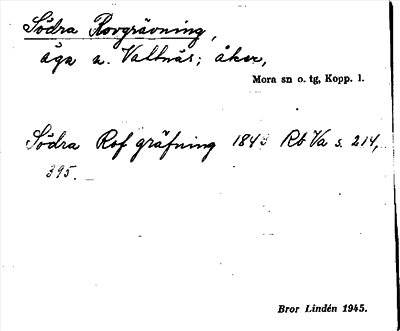 Södra Rovgrävning,
äga n. Vattnäs; åker,
Mora sn o. tg, Kopp. l.
Södra Rof gräfning 1843 Rb Va s. 214,
395.
Bror Lindén 1945.